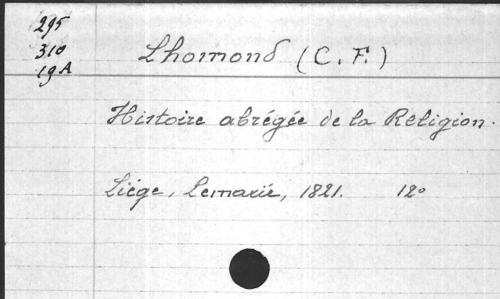 295
310
19A
Lhomond (C. F.)
Histoire abrégée de la Religion.
Liége, Lemarié, 1821. 12°